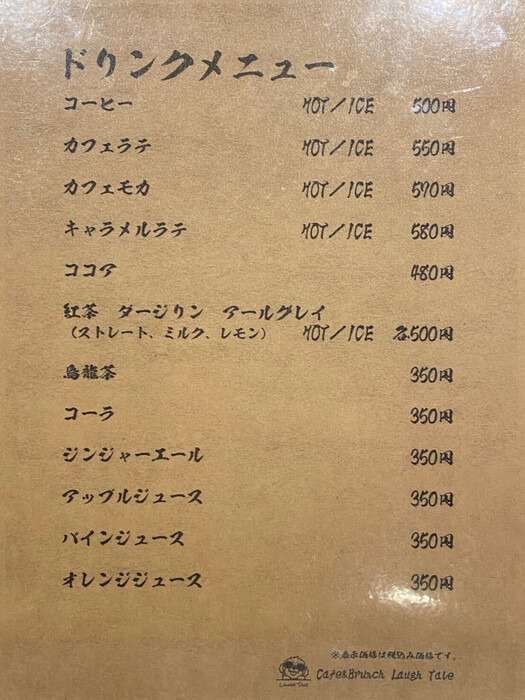 ドリンクメニュー
コーヒー HOT/ICE 500円
カフェラテ HOT/ICE 550円
カフェモカ HOT/ICE 570円
キャラメルラテ HOT/ICE 580円
ココア 480円
紅茶 ダージリン アールグレイ
(ストレート、ミルク、レモン) HOT/ICE 各500円
烏龍茶 350円
コーラ 350円
ジンジャーエール 350円
アップルジュース 350円
パインジュース 350円
オレンジジュース 350円
※表示価格は税込み価格です。
Cafe&Brunch Laugh Tale